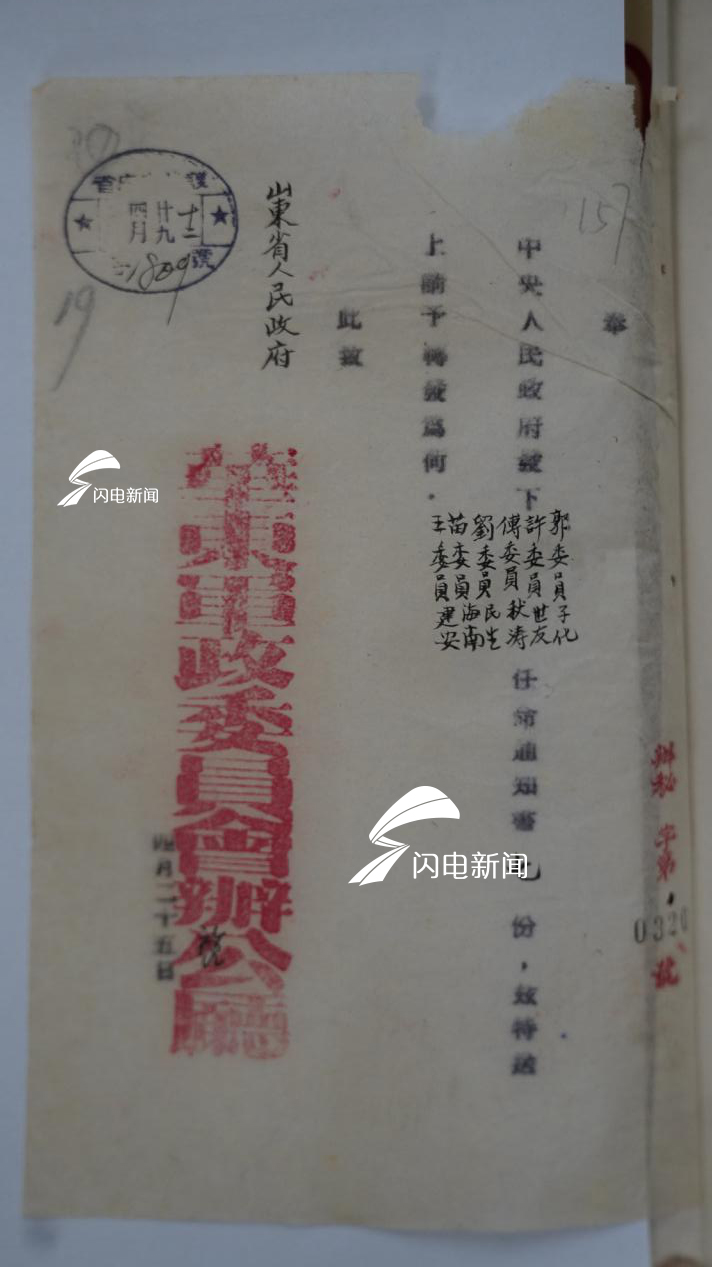 辦秘字第 0320 號
157
奉
中央人民政府發下
郭委員子化
許委員世友
傅委員秋涛
劉委員民生
苗委員海南
王委員建安
任命通知書七份，茲特送
上請予轉發爲荷．
此致
山東省人民政府
華東軍政委員會辦公廳
四月二十五日
四月
廿九
十二
號
1809
19
闪电新闻
闪电新闻